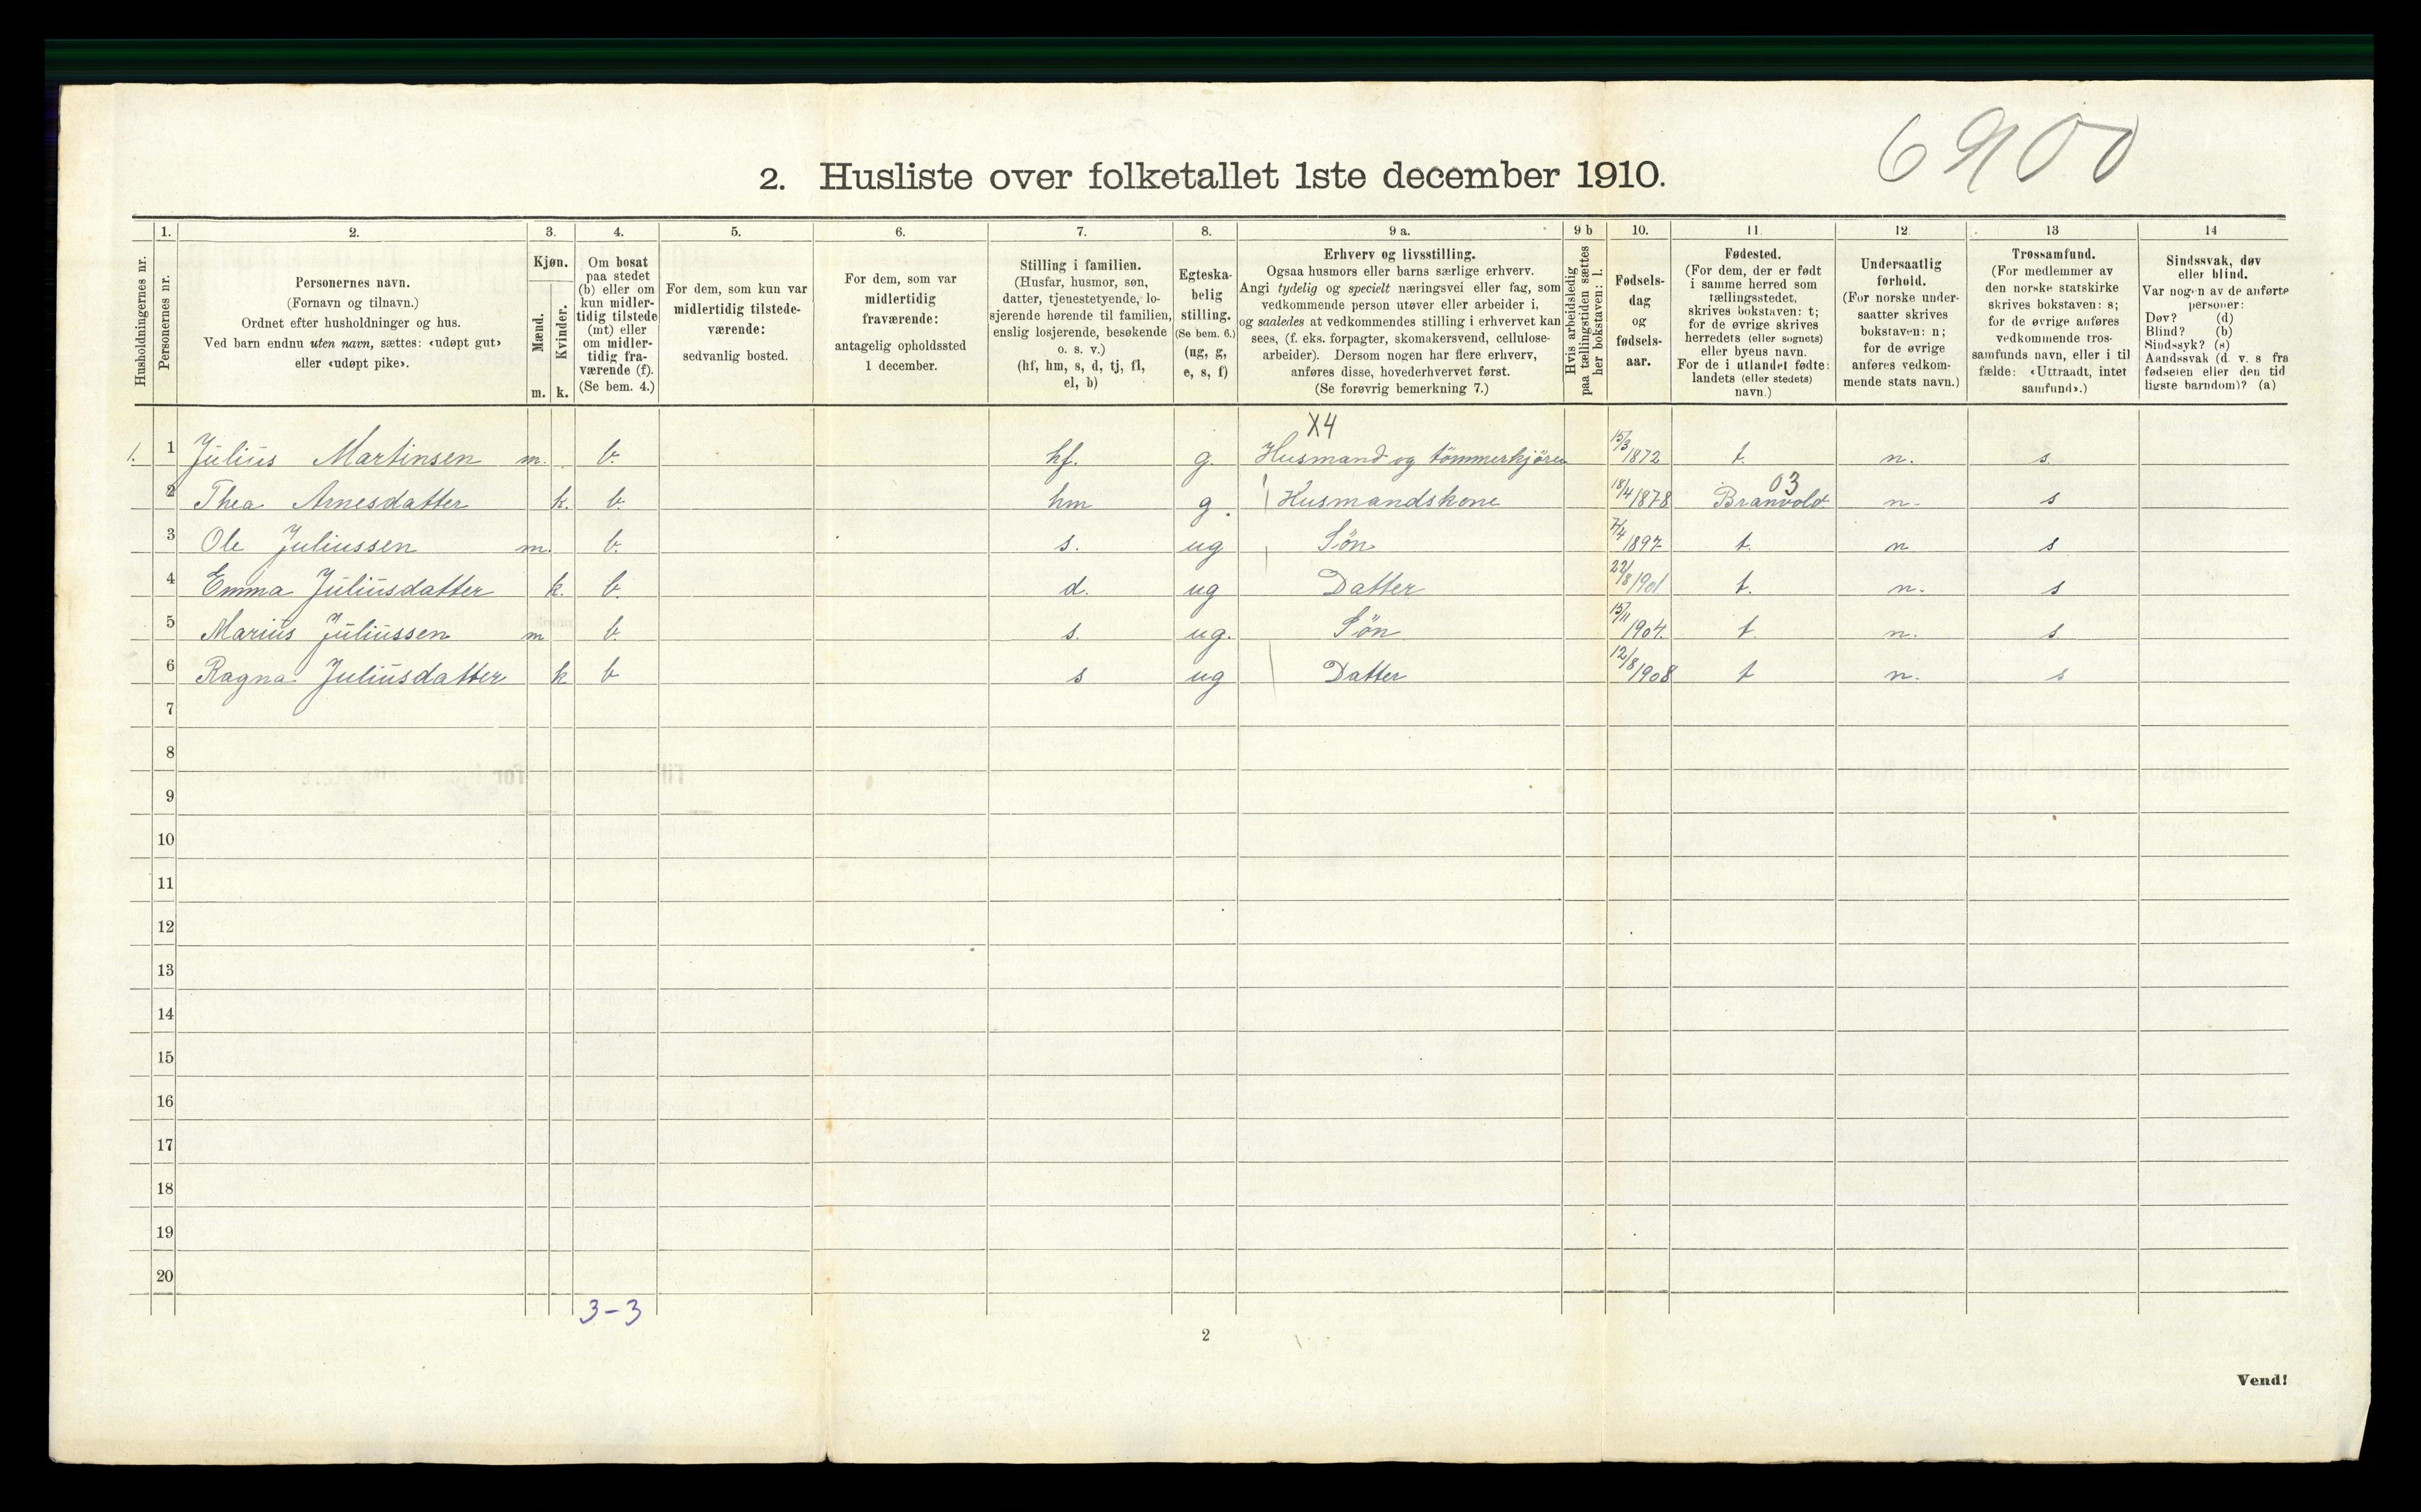 6900
2. Husliste over folketallet 1ste december 1910.
Husholdningernes nr.
1. Personernes nr.
2. Personernes navn. (Fornavn og tilnavn.) Ordnet efter husholdninger og hus. Ved barn endnu uten navn, sættes: «udøpt gut» eller «udøpt pike».
3. Kjøn. Mænd. m. Kvinder. k.
4. Om bosat paa stedet (b) eller om kun midlertidig tilstede (mt) eller om midlertidig fraværende (f). (Se bem. 4.)
5. For dem, som kun var midlertidig tilstedeværende: sedvanlig bosted.
6. For dem, som var midlertidig fraværende: antagelig opholdssted 1 december.
7. Stilling i familien. (Husfar, husmor, søn, datter, tjenestetyende, losjerende hørende til familien, enslig losjerende, besøkende o. s. v.) (hf, hm, s, d, tj, fl, el, b)
8. Egteskabelig stilling. (Se bem. 6.) (ug, g, e, s, f)
9 a. Erhverv og livsstilling. Ogsaa husmors eller barns særlige erhverv. Angi tydelig og specielt næringsvei eller fag, som vedkommende person utøver eller arbeider i, og saaledes at vedkommendes stilling i erhvervet kan sees, (f. eks. forpagter, skomakersvend, cellulose-arbeider). Dersom nogen har flere erhverv, anføres disse, hovederhvervet først. (Se forøvrig bemerkning 7.)
9 b Hvis arbeidsledig paa tællingstiden sættes her bokstaven: l.
10. Fødselsdag og fødselsaar.
11. Fødested. (For dem, der er født i samme herred som tællingsstedet, skrives bokstaven: t; for de øvrige skrives herredets (eller sognets) eller byens navn. For de i utlandet fødte: landets (eller stedets) navn.)
12 Undersaatlig forhold. (For norske undersaatter skrives bokstaven: n; for de øvrige anføres vedkommende stats navn.)
13 Trossamfund. (For medlemmer av den norske statskirke skrives bokstaven: s; for de øvrige anføres vedkommende trossamfunds navn, eller i tilfælde: «Uttraadt, intet samfund».)
14 Sindssvak, døv eller blind. Var nogen av de anførte personer: Døv? (d) Blind? (b) Sindssyk? (s) Aandssvak (d. v. s. fra fødselen eller den tidligste barndom)? (a)
X4
1. 1 Julius Martinsen m. b. hf. g. Husmand og tömmerkjörer 15/3 1872 t. n. s.
03
2 Thea Arnesdatter k. b. hm g. Husmandskone 18/4 1878 Branvold n. s
3 Ole Juliussen m. b. s. ug Sön 7/4 1897 t. n s
4 Emma Juliusdatter k. b. d. ug Datter 22/8 1901 t. n. s
5 Marius Juliussen m b. s. ug. Sön 15/11 1904. t n. s
6 Ragna Juliusdatter k b s ug Datter 12/8 1908 t n. s
7
8
9
10
11
12
13
14
15
16
17
18
19
20
3-3
2
Vend!